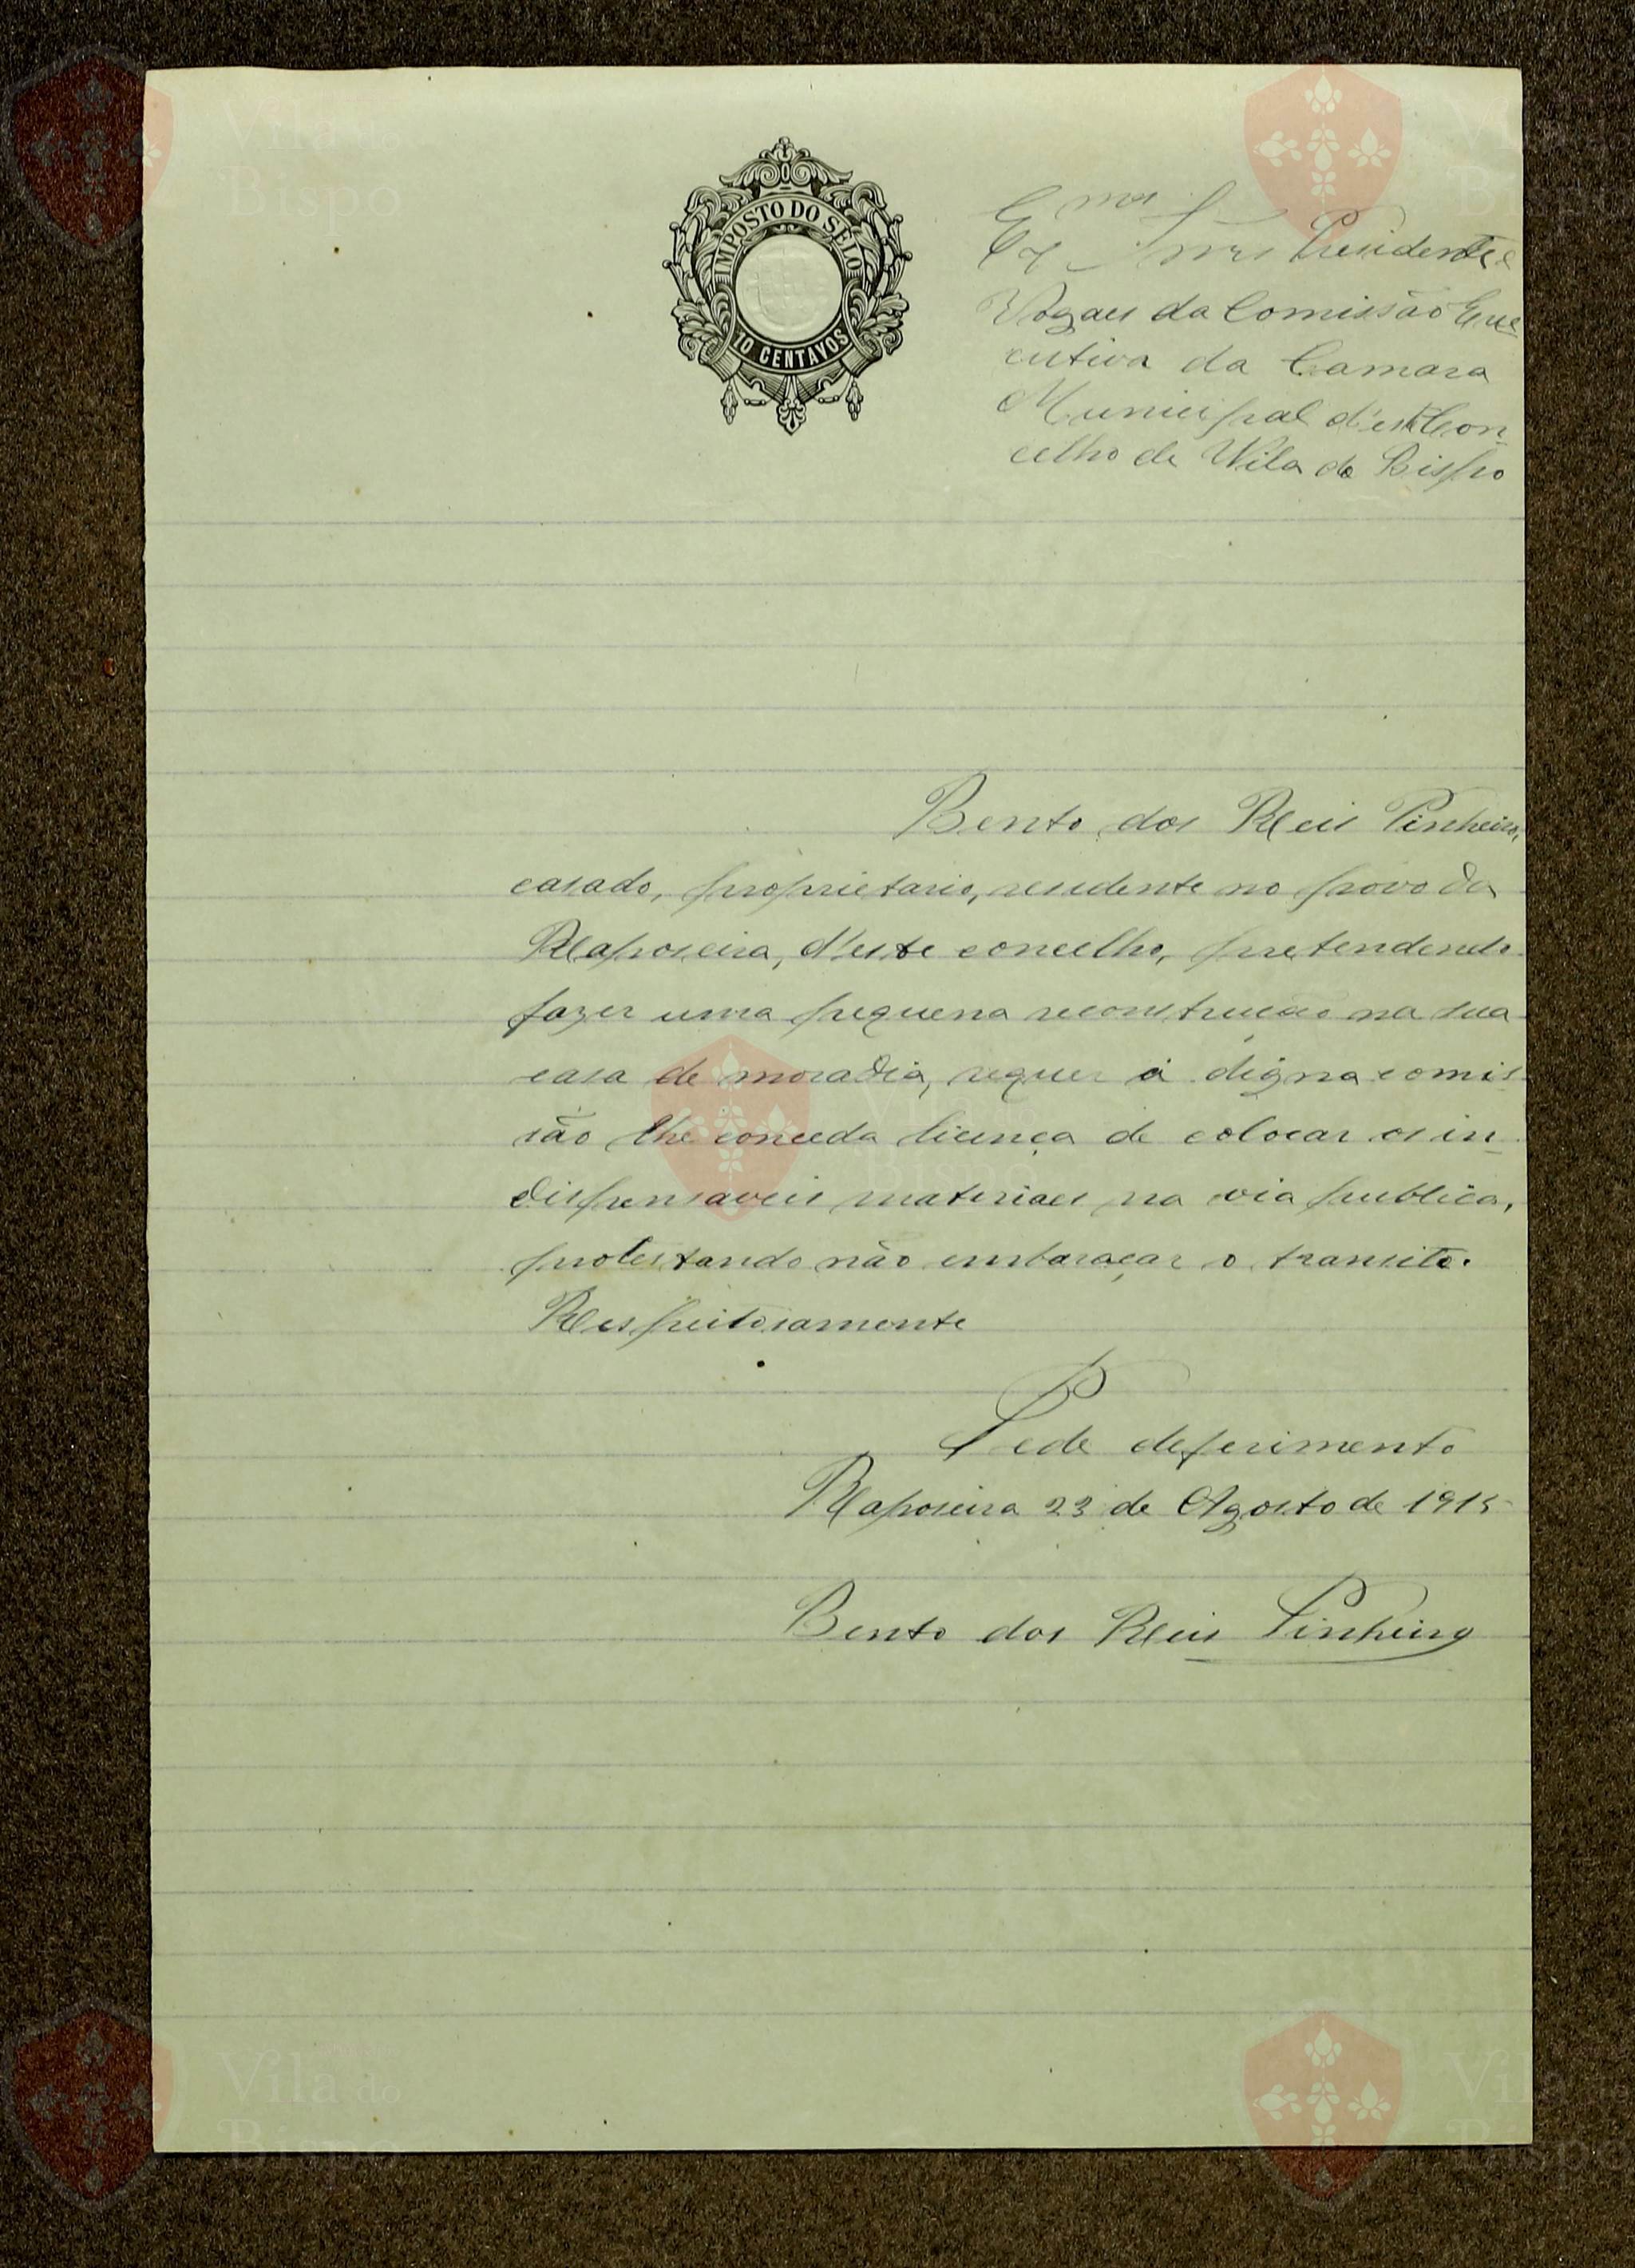 IMPOSTO DO SELO
10 CENTAVOS
Ex.mos Snrs Presidente e
Vogaes da Comissão Exe
cutiva da Camara
Municipal d'este Con
celho de Vila do Bispo
Bento dos Reis Pinheiro,
casado, proprietario, residente no povo da
Raposeira, d'este concelho, pretendendo
fazer uma pequena reconstrução na sua
casa de moradia, requer á digna comis
são lhe conceda licença de colocar os in
dispensaveis materiaes na via publica,
protestando não embaraçar o transito.
Respeitosamente
Pede deferimento
Raposeira 23 de Agosto de 1915
Bento dos Reis Pinheiro
Vila do
Bispo